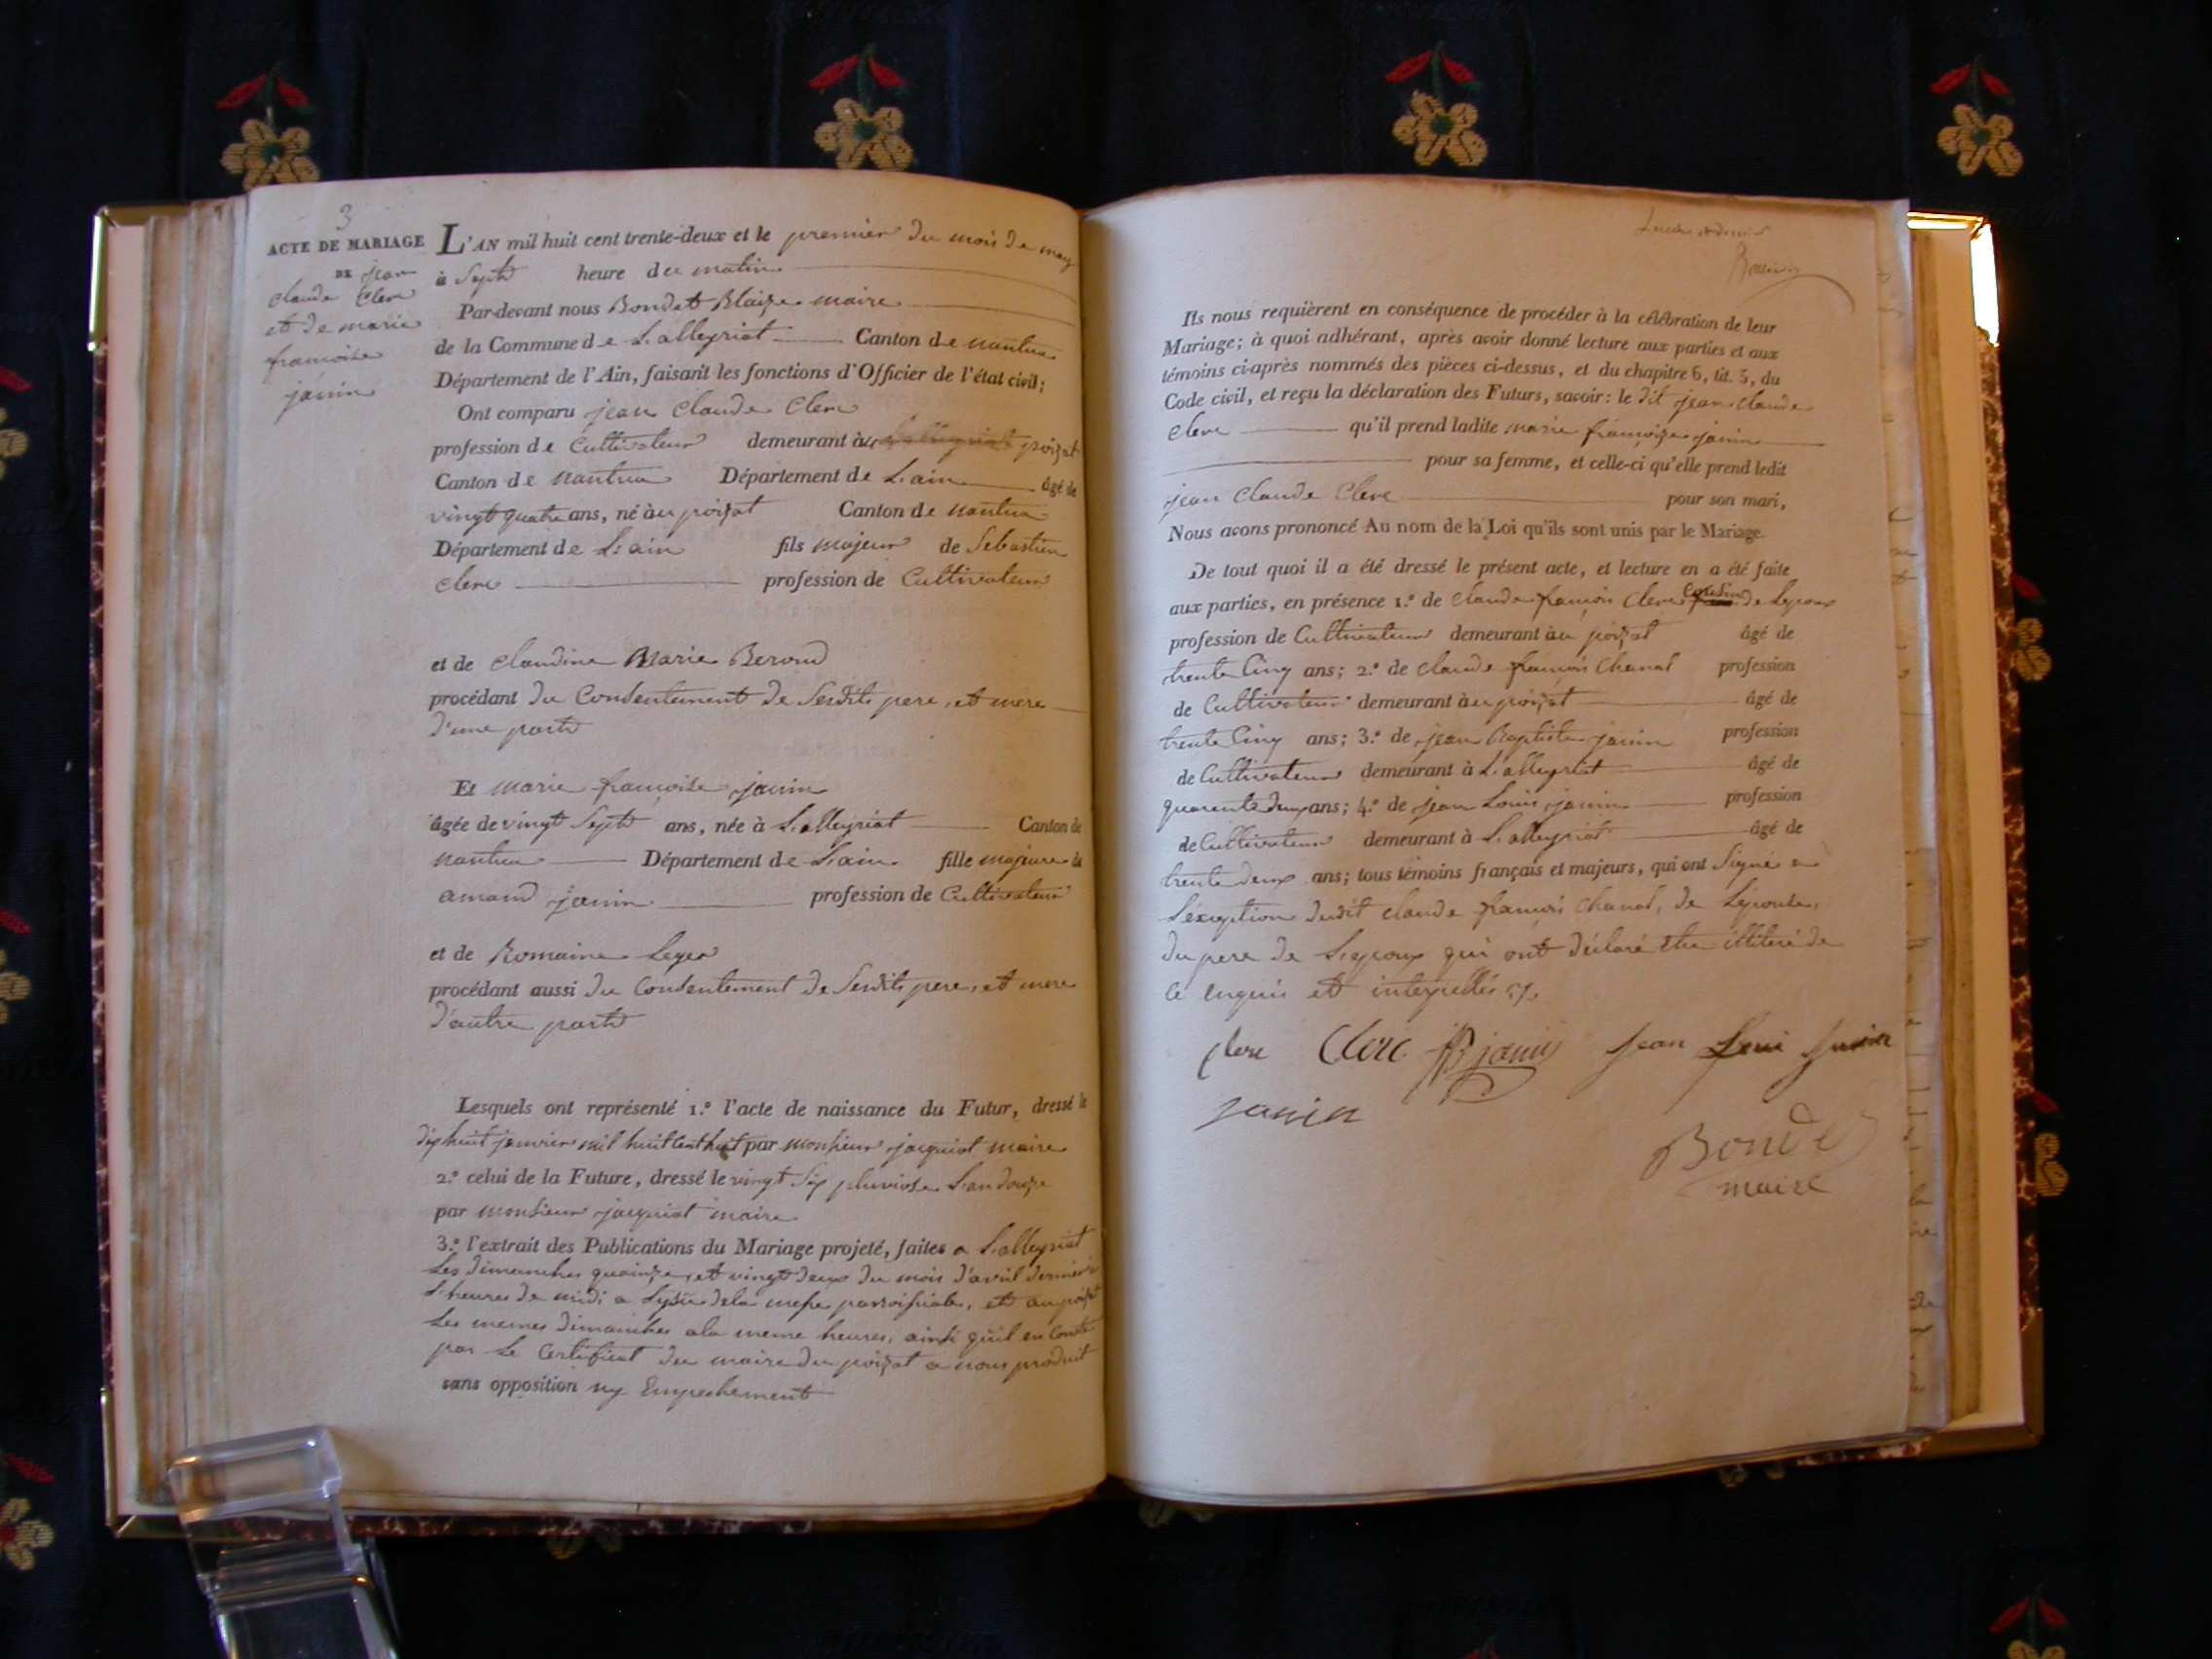 3
ACTE DE MARIAGE
DE jean
claude Clerc
et de marie
francoise
janin
L'AN mil huit cent trente-deux et le premier du mois de may
à Sept heure du matin
Par-devant nous Bondet Blaize maire
de la Commune de L'alleyriat Canton de nantua
Département de l'Ain, faisant les fonctions d'Officier de l'état civil;
Ont comparu jean Claude Clerc
profession de Cultivateur demeurant àu poizat
Canton de nantua Département de L'ain âgé de
vingt quatre ans, né àu poizat Canton de nantua
Département de L'ain fils majeur de Sebastien
clerc profession de Cultivateur
et de claudine Marie Beroud
procédant du Consentement de Sesdits pere, et mere
d'une part
Et marie francoise janin
âgée de vingt Sept ans, née à L'alleyriat Canton de
nantua Département de L'ain fille majeure de
amand janin profession de Cultivateur
et de Romaine Leger
procédant aussi du Consentement de Sesdits pere, et mere
d'autre part
Lesquels ont représenté 1.º l'acte de naissance du Futur, dressé le
dix huit janvier mil huit cent huit par monsieur jacquiot maire
2.º celui de la Future, dressé le vingt Six pluviose L'an douze
par monsieur jacquiot maire
3.º l'extrait des Publications du Mariage projeté, faites a L'alleyriat
Les dimanches quainze, et vingt deux du mois d'avril dernier
L'heures de midi a de la messe parroissiale, et au poizat
Les memes dimanches a la meme heures, ainsi qu'il en Conste
par Le Certificat du maire du poizat a nous produit
sans opposition ny Empechement
Ils nous requièrent en conséquence de procéder à la célébration de leur
Mariage; à quoi adhérant, après avoir donné lecture aux parties et aux
témoins ci-après nommés des pièces ci-dessus, et du chapitre 6, tit. 5, du
Code civil, et reçu la déclaration des Futurs, savoir: le dit jean claude
Clerc qu'il prend ladite marie françoize janin
pour sa femme, et celle-ci qu'elle prend ledit
jean Claude Clerc pour son mari,
Nous avons prononcé Au nom de la Loi qu'ils sont unis par le Mariage.
De tout quoi il a été dressé le présent acte, et lecture en a été faite
aux parties, en présence 1.º de Claude françois Clerc Cousin de Lepoux
profession de Cultivateur demeurant àu poizat âgé de
trente Cinq ans; 2.º de claude françois Chanal profession
de Cultivateur demeurant àu poizat âgé de
trente Cinq ans; 3.º de jean Baptiste janin profession
de Cultivateur demeurant à L'alleyriat âgé de
quarente deux ans; 4.º de jean Louis janin profession
de Cultivateur demeurant à L'alleyriat âgé de
trente deux ans; tous témoins français et majeurs, qui ont Signé a
L'éxception dudit claude françois Chanal, de Lépouse,
du pere de Lepoux qui ont déclaré etre illiteré de
ce enquis et interpellés
clerc Clerc JB janin jean Loui Janin
janin
Bondet
maire